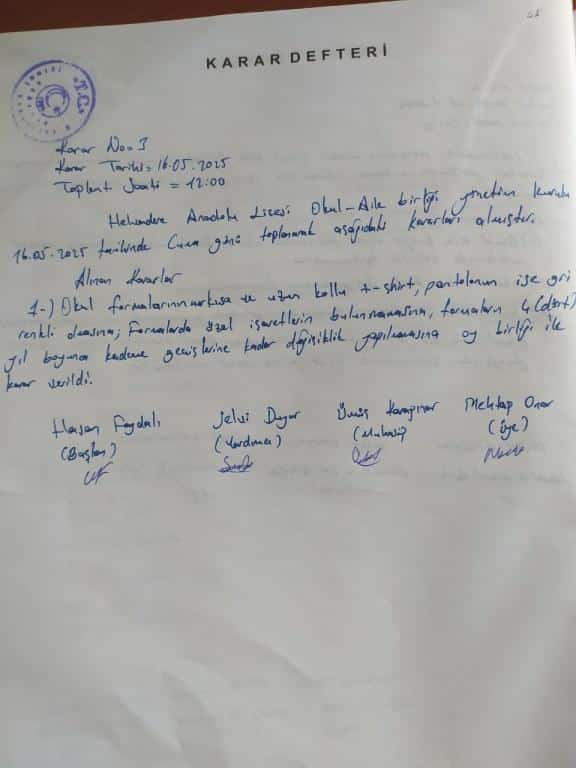 KARAR DEFTERİ
T.C.
Karar No= 3
Karar Tarihi= 16.05.2025
Toplantı Saati = 12:00
Anadolu Lisesi Okul-Aile birliği yönetim kurulu
16.05.2025 tarihinde Cuma günü toplanarak aşağıdaki kararları almıştır.
Alınan Kararlar
1-) Okul formalarının kısa ve uzun kollu t-shirt, pantolonun ise gri
renkli olmasına; Formalarda özel işaretlerin bulunmamasına, formaların 4 (dört)
yıl boyunca kademe geçişlerine kadar değişiklik yapılmamasına oy birliği ile
karar verildi.
Hasan Faydalı Duyar Ümüş Karapınar Mehtap Onar
(Başkan) (Yardımcı) (Muhasip) (Üye)